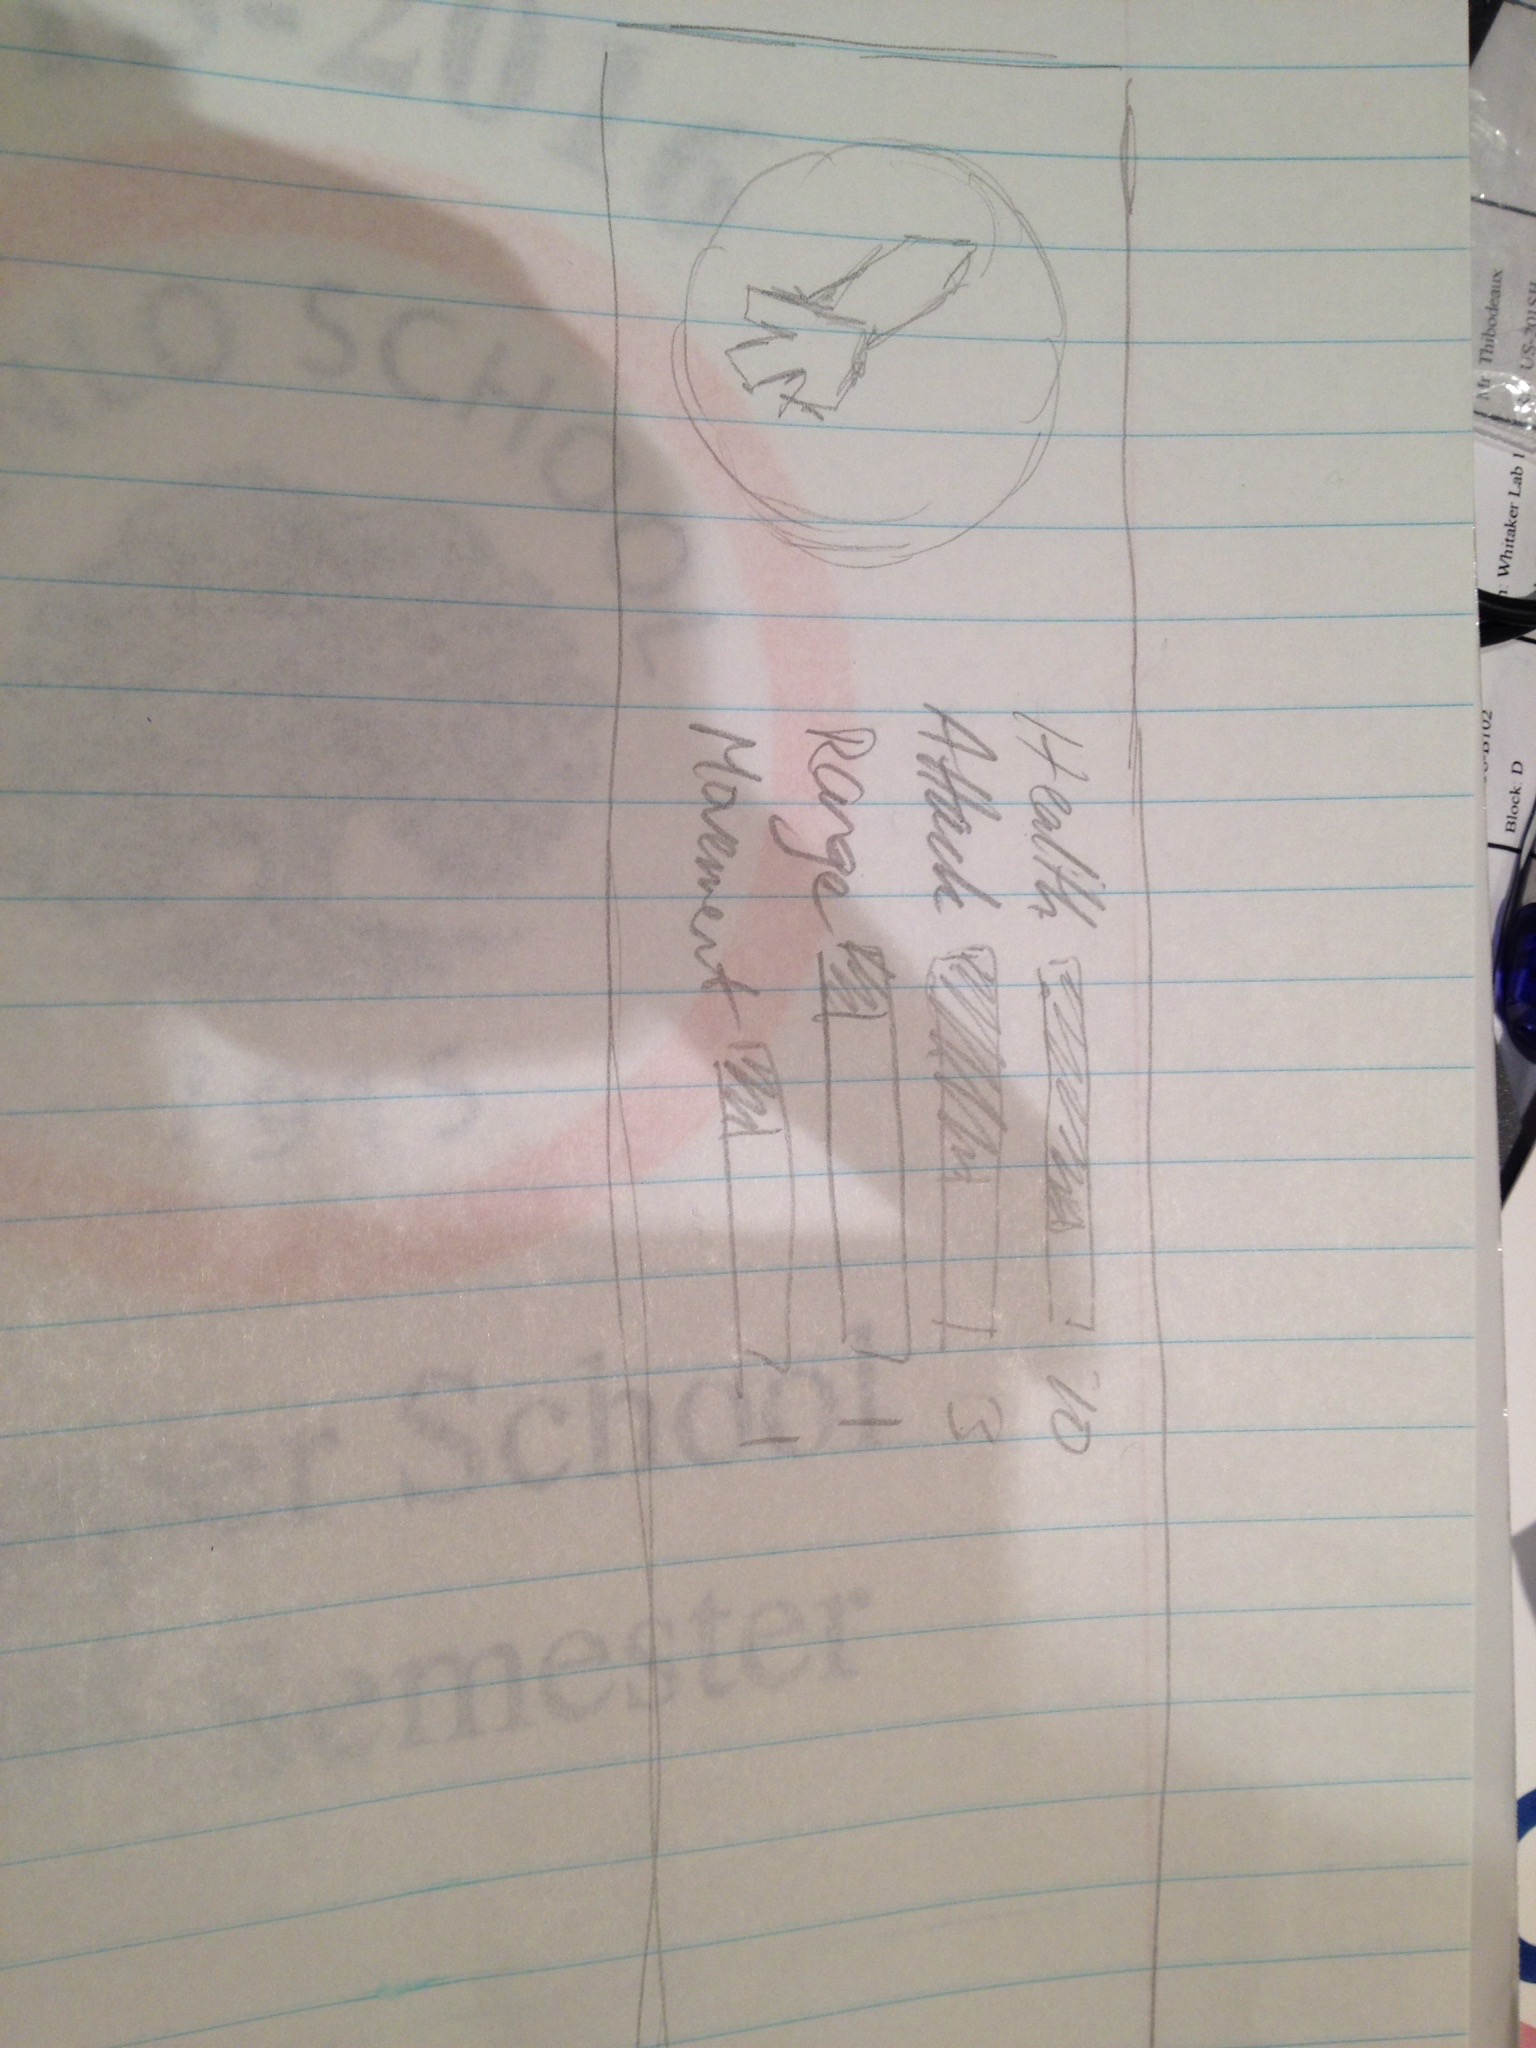 Health 10
Attack 3
Range 1
Movement 1
O SCHOOL
er School
semester
Mr. Thibodeaux
Whitaker Lab 1
Block: D